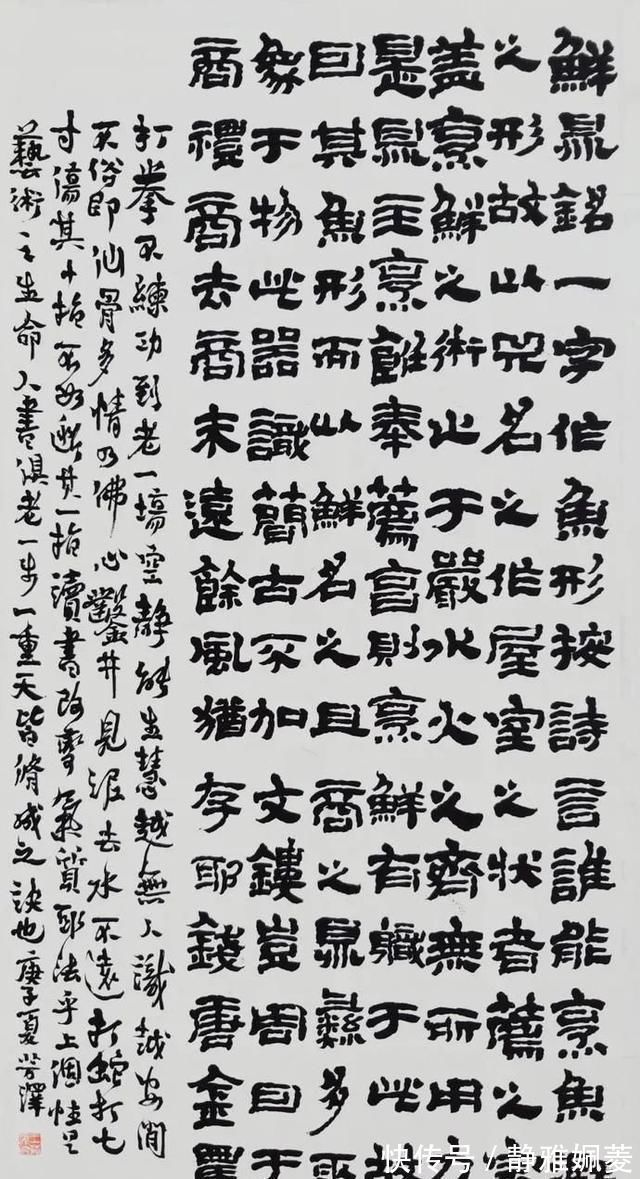 鮮鼎銘一字作魚形按詩言誰能烹魚
之形故以名之作屋室之狀者薦之
蓋烹鮮之術止于嚴水火之齊無所用
是鼎主烹飪奉薦宮則烹鮮有職于此故
曰其魚形而以鮮名之且商之鼎彝多取
象于物此器識簡古不加文鏤豈周曰于
商禮商去商未遠餘風猶存耶錢唐金農
打拳不練功到老一場空靜能生慧越無人識越安閒
不俗即仙骨多情乃佛心鑿井見泥去水不遠打蛇打七
寸傷其十指不如斷其一指讀書改變氣質取法乎上個性是
藝術之生命人書俱老一步一重天皆脩成之訣也庚子夏芳澤
快传号/静雅姵菱